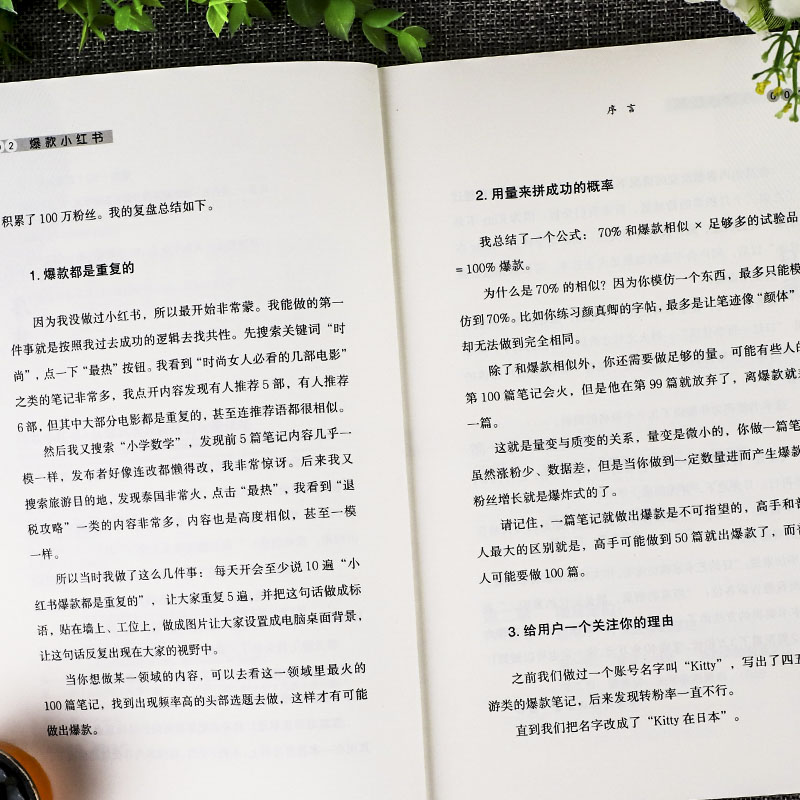 2 爆款小红书
积累了 100 万粉丝。我的复盘总结如下。
1. 爆款都是重复的
因为我没做过小红书，所以最开始非常蒙。我能做的第一
件事就是按照我过去成功的逻辑去找共性。先搜索关键词“时
尚”，点一下“最热”按钮。我看到“时尚女人必看的几部电影”
之类的笔记非常多，我点开内容发现有人推荐 5 部，有人推荐
6 部，但其中大部分电影都是重复的，甚至连推荐语都很相似。
然后我又搜索“小学数学”，发现前 5 篇笔记内容几乎一
模一样，发布者好像连改都懒得改，我非常惊讶。后来我又
搜索旅游目的地，发现泰国非常火，点击“最热”，我看到“退
税攻略”一类的内容非常多，内容也是高度相似，甚至一模
一样。
所以当时我做了这么几件事：每天开会至少说 10 遍“小
红书爆款都是重复的”，让大家重复 5 遍，并把这句话做成标
语，贴在墙上、工位上，做成图片让大家设置成电脑桌面背景，
让这句话反复出现在大家的视野中。
当你想做某一领域的内容，可以去看这一领域里最火的
100 篇笔记，找到出现频率高的头部选题去做，这样才有可能
做出爆款。
序言
2. 用量来拼成功的概率
我总结了一个公式：70% 和爆款相似 × 足够多的试验品
= 100% 爆款。
为什么是 70% 的相似？因为你模仿一个东西，最多只能模
仿到 70%。比如你练习颜真卿的字帖，最多是让笔迹像“颜体”
却无法做到完全相同。
除了和爆款相似外，你还需要做足够的量。可能有些人的
第 100 篇笔记会火，但是他在第 99 篇就放弃了，离爆款就
一篇。
这就是量变与质变的关系，量变是微小的，你做一篇笔
虽然涨粉少、数据差，但是当你做到一定数量进而产生爆款
粉丝增长就是爆炸式的了。
请记住，一篇笔记就做出爆款是不可指望的，高手和普
人最大的区别就是，高手可能做到 50 篇就出爆款了，而
人可能要做 100 篇。
3. 给用户一个关注你的理由
之前我们做过一个账号名字叫“Kitty”，写出了四五
游类的爆款笔记，后来发现转粉率一直不行。
直到我们把名字改成了“Kitty 在日本”。